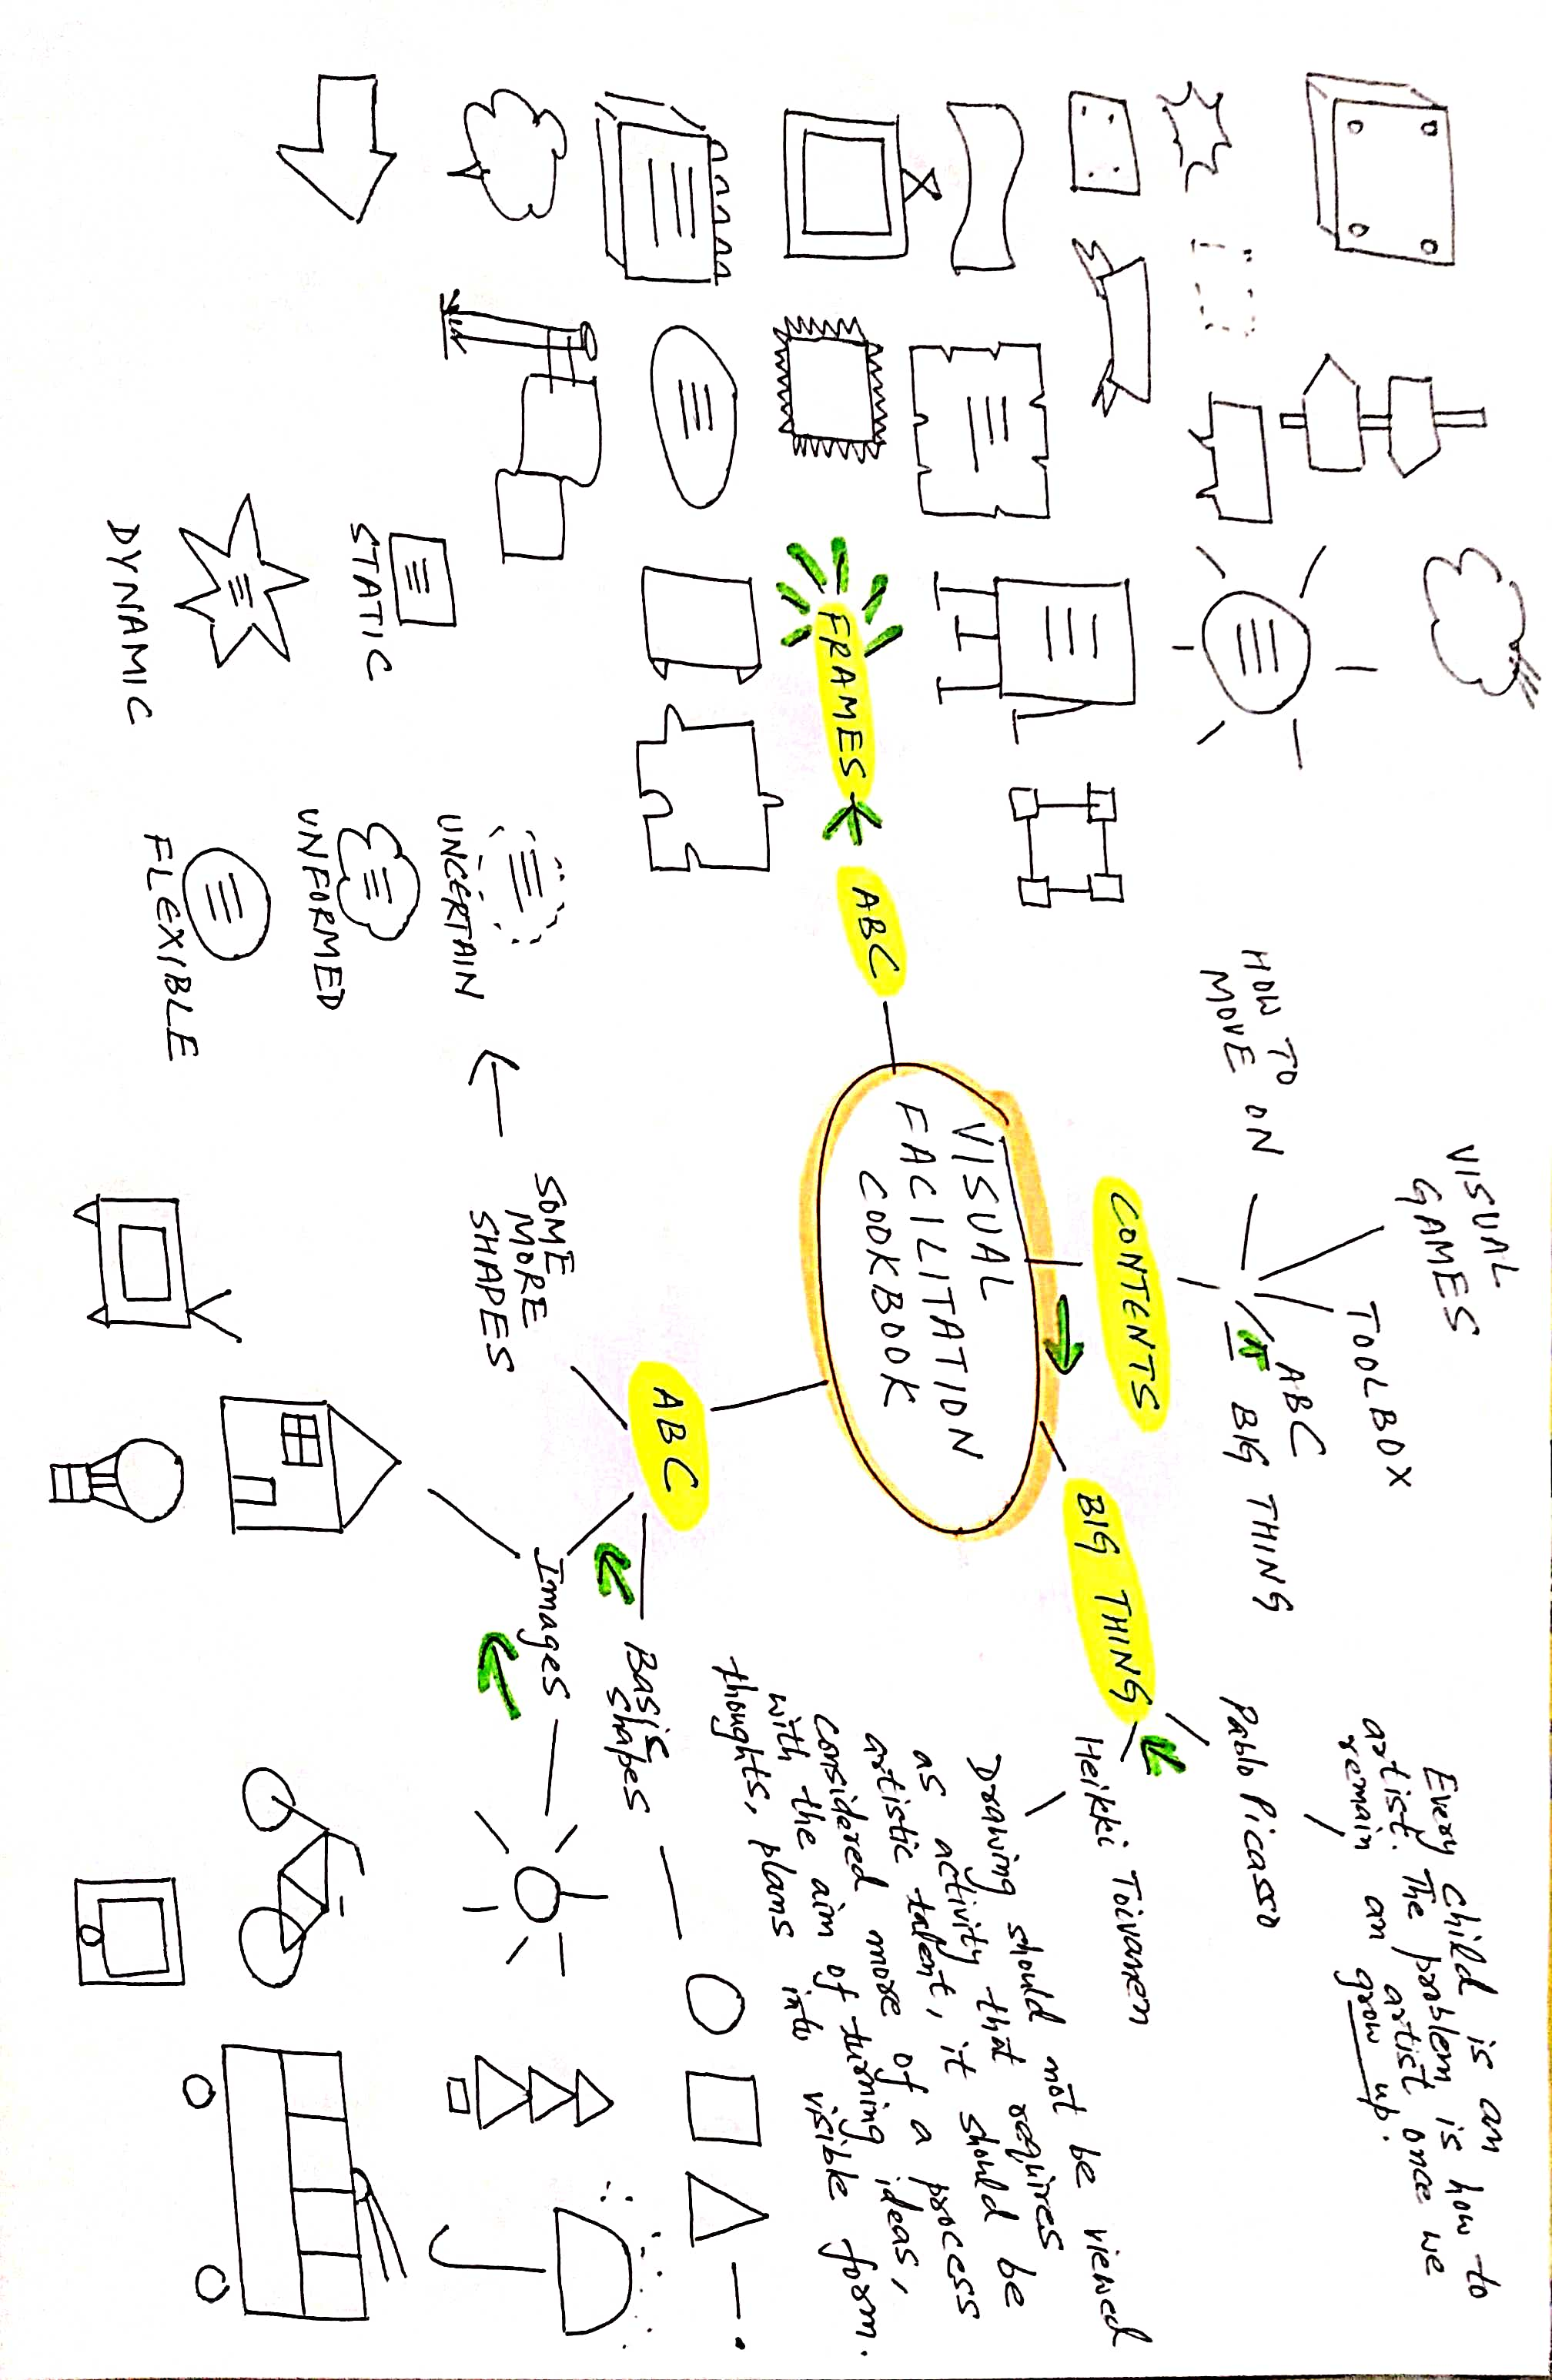 VISUAL
FACILITATION
COOKBOOK
CONTENTS
HOW TO
MOVE ON
VISUAL
GAMES
TOOLBOX
ABC
BIG THING
BIG THING
Pablo Picasso
Every child is an
artist. The problem is how to
remain an artist once we
grow up.
Heikki Toivanen
Drawing should not be viewed
as activity that requires
artistic talent, it should be
considered more of a process
with the aim of turning ideas,
thoughts, plans into visible form.
ABC
Basic
shapes
Images
SOME
MORE
SHAPES
UNCERTAIN
UNFORMED
FLEXIBLE
STATIC
DYNAMIC
ABC
FRAMES